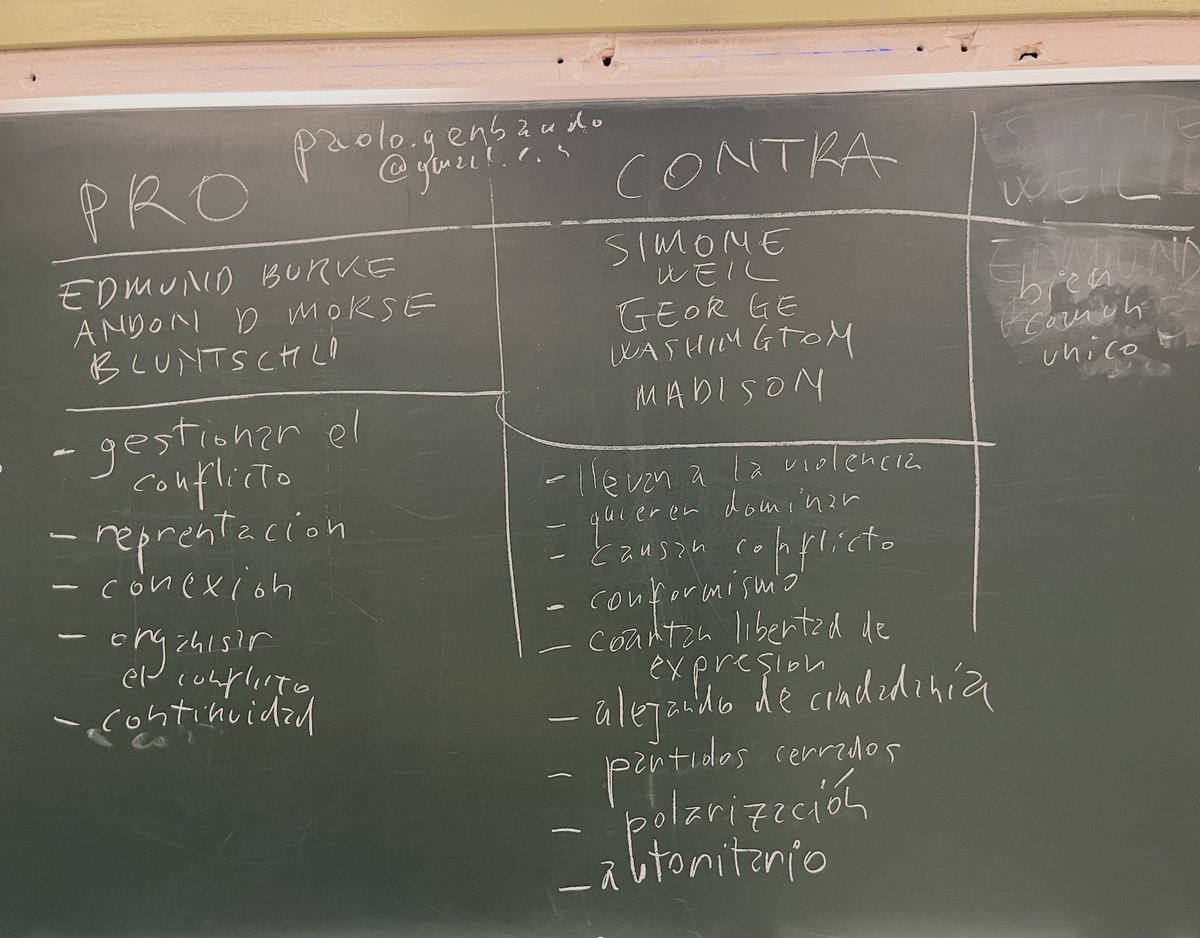 paolo.gerbaudo
@gmail.com
PRO
EDMUND BURKE
ANDON D MORSE
BLUNTSCHLI
- gestionar el
conflicto
- reprentacion
- conexion
- organisar
el conflicto
- continuidad
CONTRA
SIMONE
WEIL
GEORGE
WASHINGTON
MADISON
- llevan a la violencia
- quieren dominar
- causan conflicto
- conformismo
- coartan libertad de
expresion
- alejando de ciudadanía
- partidos cerrados
- polarización
- autoritario
SIMONE
WEIL
EDMUND
bien
comun
unico -